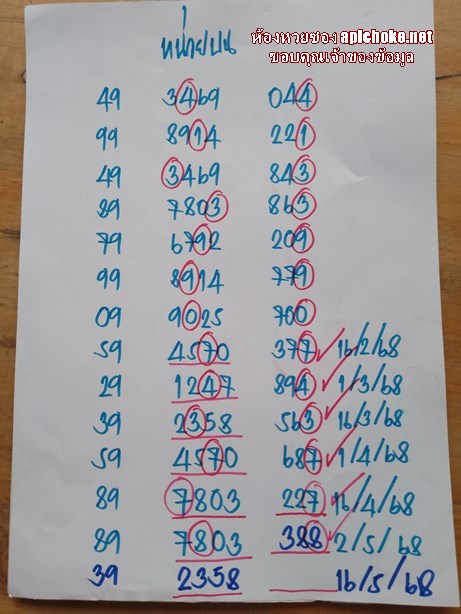 ห้องหวยซอง apichoke.net
ขอบคุณเจ้าของข้อมูล
หน่วยบน
49 3469 044
99 8914 221
49 3469 843
89 7803 863
79 6792 209
99 8914 779
09 9025 760
59 4570 377 16/2/68
29 1247 894 1/3/68
39 2358 563 16/3/68
59 4570 687 1/4/68
89 7803 227 16/4/68
89 7803 388 2/5/68
39 2358 16/5/68